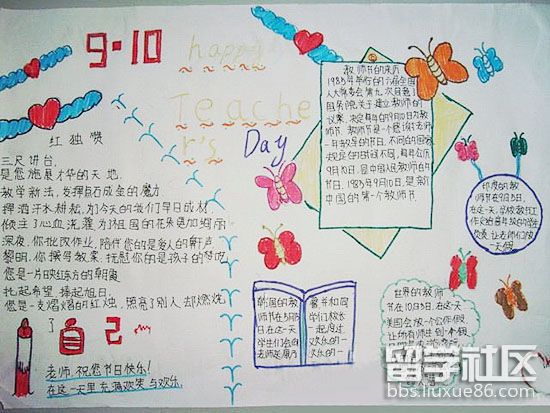 9·10
happy
Teache
r's Day
红独赞
三尺讲台,
是您施展才华的天地.
教学新法,发挥点石成金的魔力
挥洒汗水耕耘,为今天的我们早日成材
倾注了心血浇灌,为祖国的花朵更加绚丽
深夜,你批改作业,陪伴您的是爱人的鼾声
黎明,你撰写教案,抚慰你的是孩子的梦呓
您是一片映红东方的朝霞
托起希望,捧起旭日.
您是一支熠熠的红烛,照亮了别人,却燃烧
了自己
老师,祝您节日快乐!
在这一天里充满欢笑与欢乐.
教师节的来历
1985年
议案,决定每年的9月10日为教师
节.教师节是一个感谢老师
一年教导的节日.不同的国家
决定的时间不同,每年公历
9月10日,是中国人民教师的
节日.1985年9月10日,是新
中国的第一个教师节.
印度的教
师节在9月5日,
在这一天,
假
韩国的教
师节5月15
日在这一天
学生们会向
老师
并和同
学们校长
一起度过
欢乐的一
世界的教师
节在10月5日,在这天
美国会放一个公休假,
让所有师生
留学社区
bbs.liuxue86.com